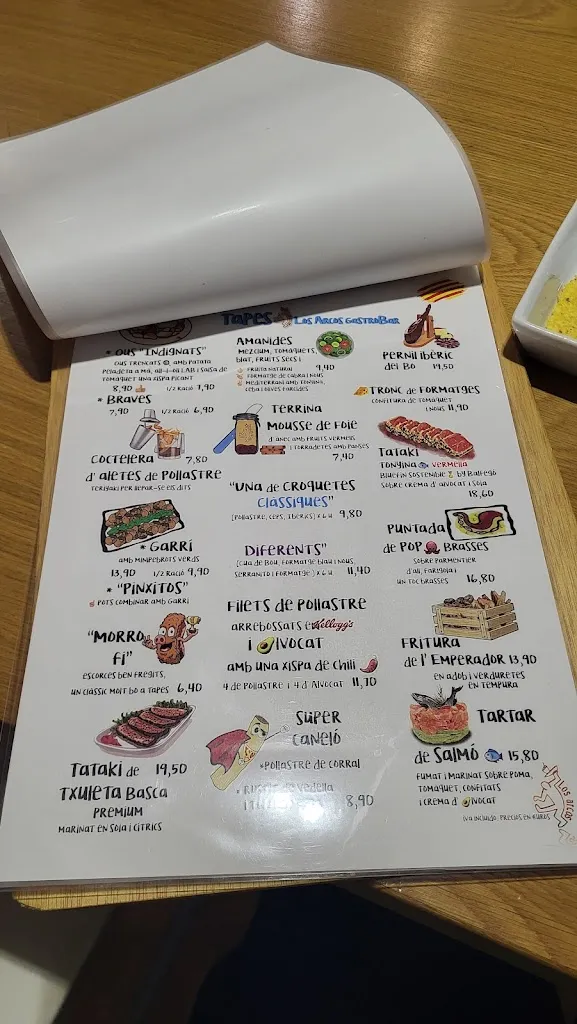 Tapes Los Arcos GastroBar
* Ous "Indignats"
Ous trencats, amb patata
Pelada a mà, all-i-oli LAB i salsa de
tomàquet una xispa picant
8,90 1/2 Ració 7,90
* Braves
7,90 1/2 Ració 6,90
Coctelera 7,80
d'aletes de pollastre
Teriyaki per llepar-se els dits
* Garrí
amb minipebrots verds
13,90 1/2 Ració 9,90
* "Pinxitos"
pots combinar amb garrí
"Morro
fi"
escorces ben fregits,
un clàssic molt bo a tapes 6,40
Tataki de 19,50
Txuleta Basca
Premium
Marinat en soia i cítrics
Amanides
Mezclum, tomàquets,
blat, fruits secs i
Fruita natural 9,90
Formatge de cabra i nous
Mediterrani amb tonyina,
ceba i olives farcides
Terrina
Mousse de Foie
d'ànec amb fruits vermells
i torradetes amb panses
7,40
"Una de croquetes
Clàssiques"
(Pollastre, ceps, ibèrics) x 6 u. 9,80
Diferents"
(Cua de bou, formatge blau i nous,
serranito i formatge) x 6 u. 11,40
Filets de pollastre
arrebossats en Kellogg's
i Alvocat
amb una xispa de chili
4 de pollastre i 4 d'Alvocat 11,70
Super
Caneló
* Pollastre de corral
* Rustit de vedella
8,90
Pernil Ibèric
del Bo 19,50
Tronc de formatges
Confitura de tomàquet
i nous 11,90
Tataki
Tonyina vermella
Bluefin sostenible by Balfegó
sobre crema d'alvocat i soia
18,60
Puntada
de Pop Brasses
sobre parmentier
d'all, farigola i
un toc brasses 16,80
Fritura
de l'Emperador 13,90
en adob i verduretes
en tempura
Tartar
de Salmó 15,80
Fumat i marinat sobre poma,
tomàquet, confitats
i crema d'alvocat
Iva incluido. Precios en euros
Los Arcos